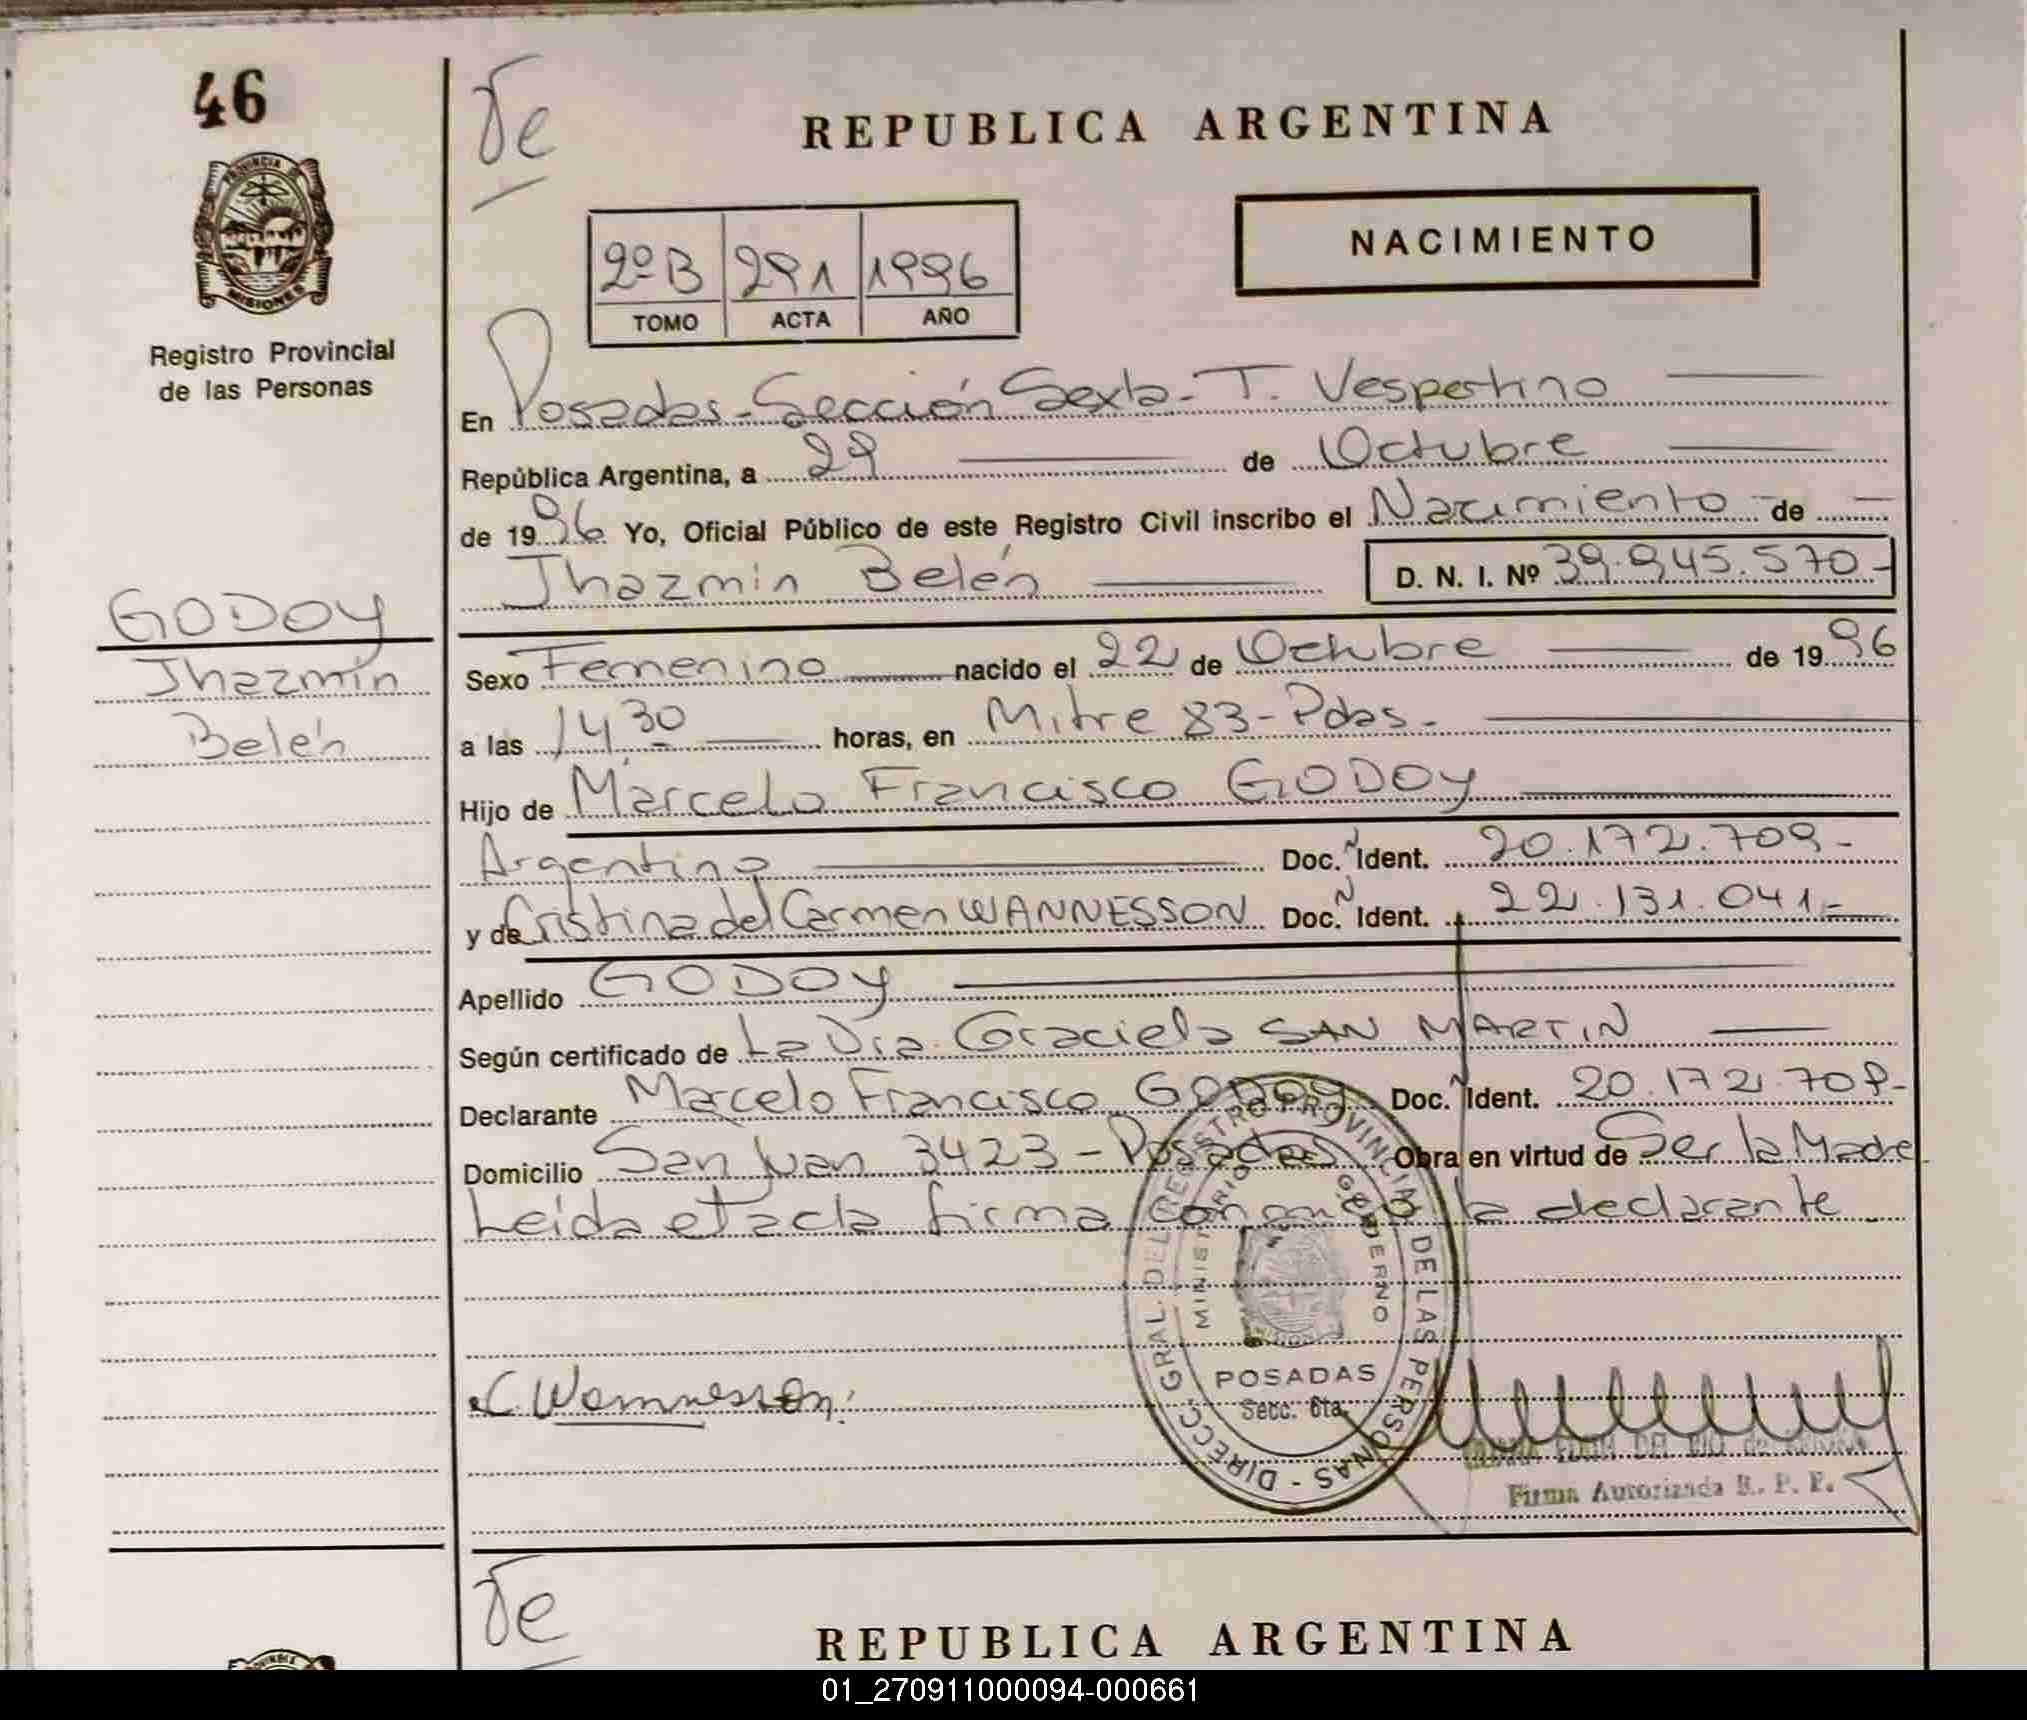 46
De
REPUBLICA ARGENTINA
PROVINCIA DE
MISIONES
Registro Provincial
de las Personas
2º B 291 1996
TOMO ACTA AÑO
NACIMIENTO
En Posadas-Sección Sexta- T. Vespertino
República Argentina, a 29 de Octubre
de 1996 Yo, Oficial Público de este Registro Civil inscribo el Nacimiento de
Jhazmín Belén D. N. I. Nº 39.945.570-
GODOY
Jhazmín
Belén
Sexo Femenino nacido el 22 de Octubre de 1996
a las 14 30 horas, en Mitre 83-Pdas.
Hijo de Marcelo Francisco GODOY
Argentino Doc. N Ident. 20.172.709-
y de Cristina del Carmen WANNESSON Doc. N Ident. 22.131.041-
Apellido GODOY
Según certificado de La Dra. Graciela SAN MARTIN
Declarante Marcelo Francisco GODOY Doc. N Ident. 20.172.709-
Domicilio San Juan 3423-Posadas Obra en virtud de Ser la Madre
Leída el acta firma la declarante
DIRECC. GRAL. DEL REGISTRO PROVINCIAL DE LAS PERSONAS -
MINISTERIO GOBIERNO
POSADAS
Secc. 6ta.
C Wannesson
Firma Autorizada R. P. P.
De
REPUBLICA ARGENTINA
01_270911000094-000661